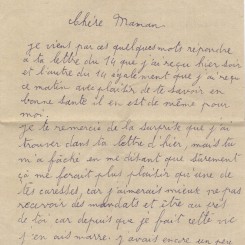 Chère Maman
je vient par ces quelques mots repondre
à ta lettre du 14 que j'ai reçu hier soir
et l'autre du 14 egalement que j'ai reçu
ce matin avec plaisir de te savoir en
bonne santé il en est de même pour
moi.
je te remercie de la surprise que j'ai
trouver dans ta lettre d'hier, mais tu
m'a fâché en me disant que sûrement
ça me ferait plus plaisir qu'une de
tes caresses, car j'aimerais mieux ne pas
recevoir des mandats et être au près
de toi car depuis que je fait cette vie
j'en ais marre; j'avais encore un peu